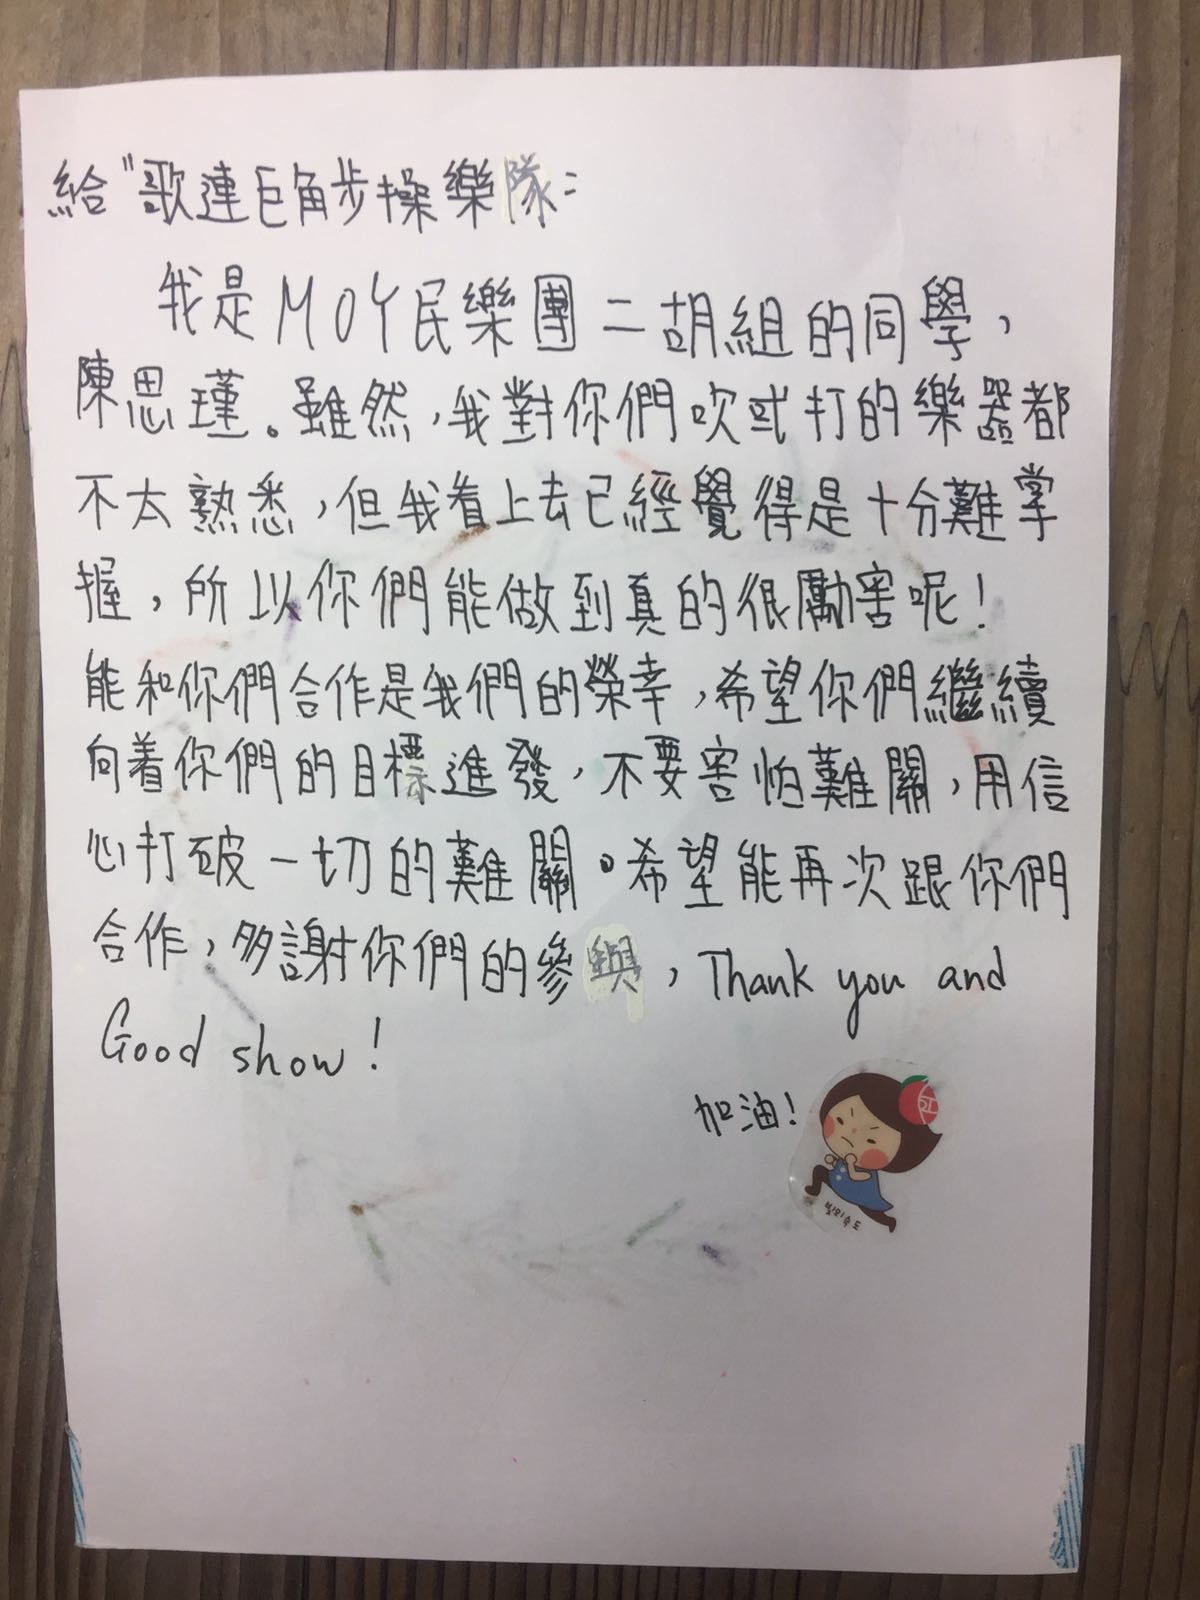 給"歌連臣角步操樂隊：
我是MOY民樂團二胡組的同學，
陳思瑾。雖然，我對你們吹或打的樂器都
不太熟悉，但我看上去已經覺得是十分難掌
握，所以你們能做到真的很勵害呢！
能和你們合作是我們的榮幸，希望你們繼續
向着你們的目標進發，不要害怕難關，用信
心打破一切的難關。希望能再次跟你們
合作，多謝你們的參與，Thank you and
Good show!
加油！